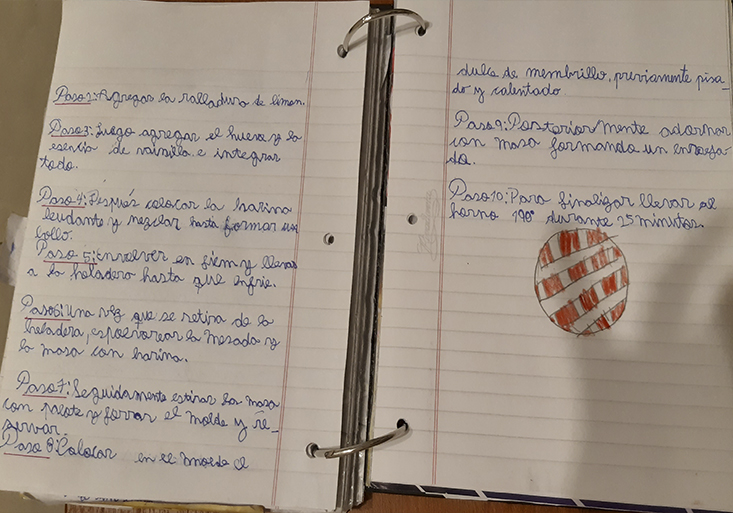 Paso 2: Agregar la ralladura de limon.
Paso 3: Luego agregar el huevo y la
esencia de vainilla e integrar
todo.
Paso 4: Después colocar la harina
leudante y mezclar hasta formar un
bollo.
Paso 5: Envolver en film y llevar
a la heladera hasta que enfrie.
Paso 6: Una vez que se retira de la
heladera, espolvorear la mesada y
la masa con harina.
Paso 7: Seguidamente estirar la masa
con palote y forrar el molde y re-
servar.
Paso 8: Colocar en el molde el
dulce de membrillo, previamente pisa_
do y calentado
Paso 9: Posteriormente adornar
con masa formando un enreja
do.
Paso 10: Para finalizar llevar al
horno 190° durante 25 minutos.